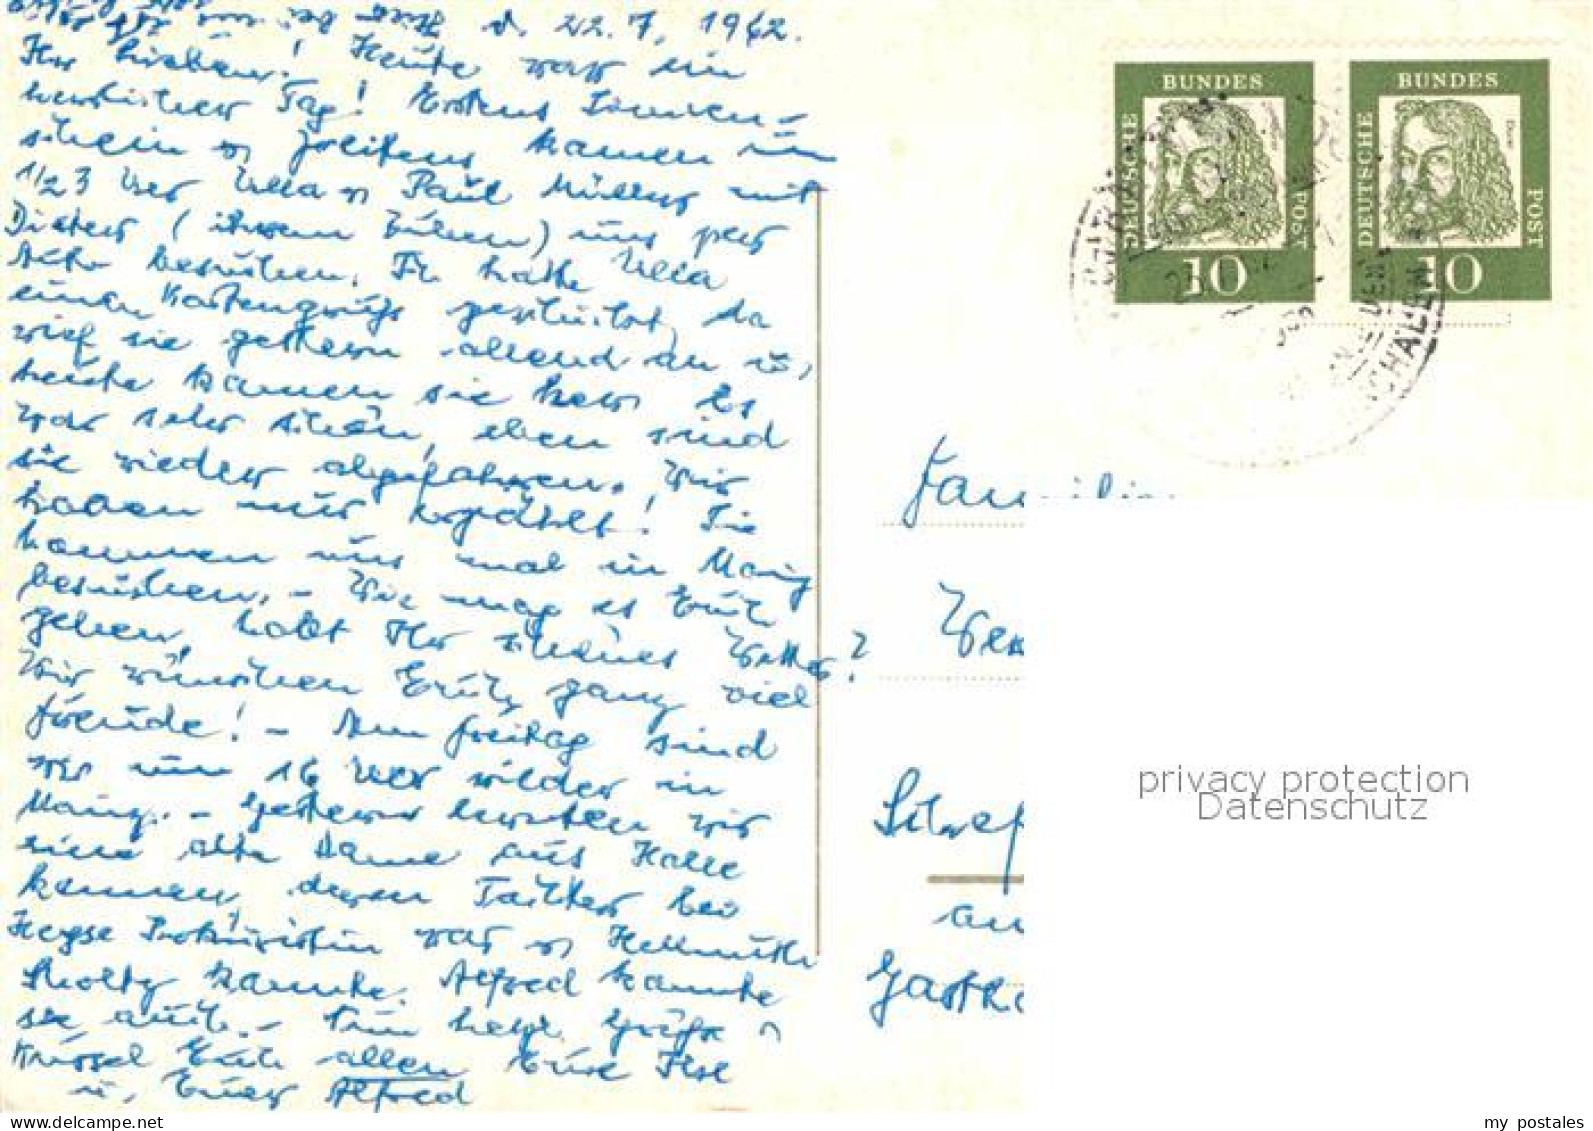 d. 22. 7. 1962.
Ihr Lieben! Heute war ein
herrlicher Tag! Erstens Sonnen-
schein u. zweitens kamen um
1/2 3 Uhr Ulla u. Paul Müller mit
Dieter (ihrem Jüngen) uns per
Auto besuchen. Ich hatte Ulla
einen Kartengruß geschickt, da
rief sie gestern abend an u.
heute kamen sie her. Es
war sehr schön, eben sind
sie wieder abgefahren. Wir
haben nur erzählt! Sie
kommen uns mal in Mainz
besuchen. - Wie mag es Euch
gehen, habt Ihr schönes Wetter?
Wir wünschen Euch ganz viel
Freude! - Am Freitag sind
wir um 16 Uhr wieder in
Mainz. - Gestern lernten wir
eine alte Dame aus Halle
kennen, deren Tochter bei
Heyse Prokuristin war u. Hellmuth
kannte. Alfred kannte
sie auch. - Nun herzl. Grüße u.
Küssel Euch allen Eure Ilse
u. Euer Alfred
BUNDES
DEUTSCHE
POST
10
BUNDES
DEUTSCHE
POST
Dürer
10
SCHALEN
Familie
privacy protection
Datenschutz
an
www.delcampe.net
my_postales